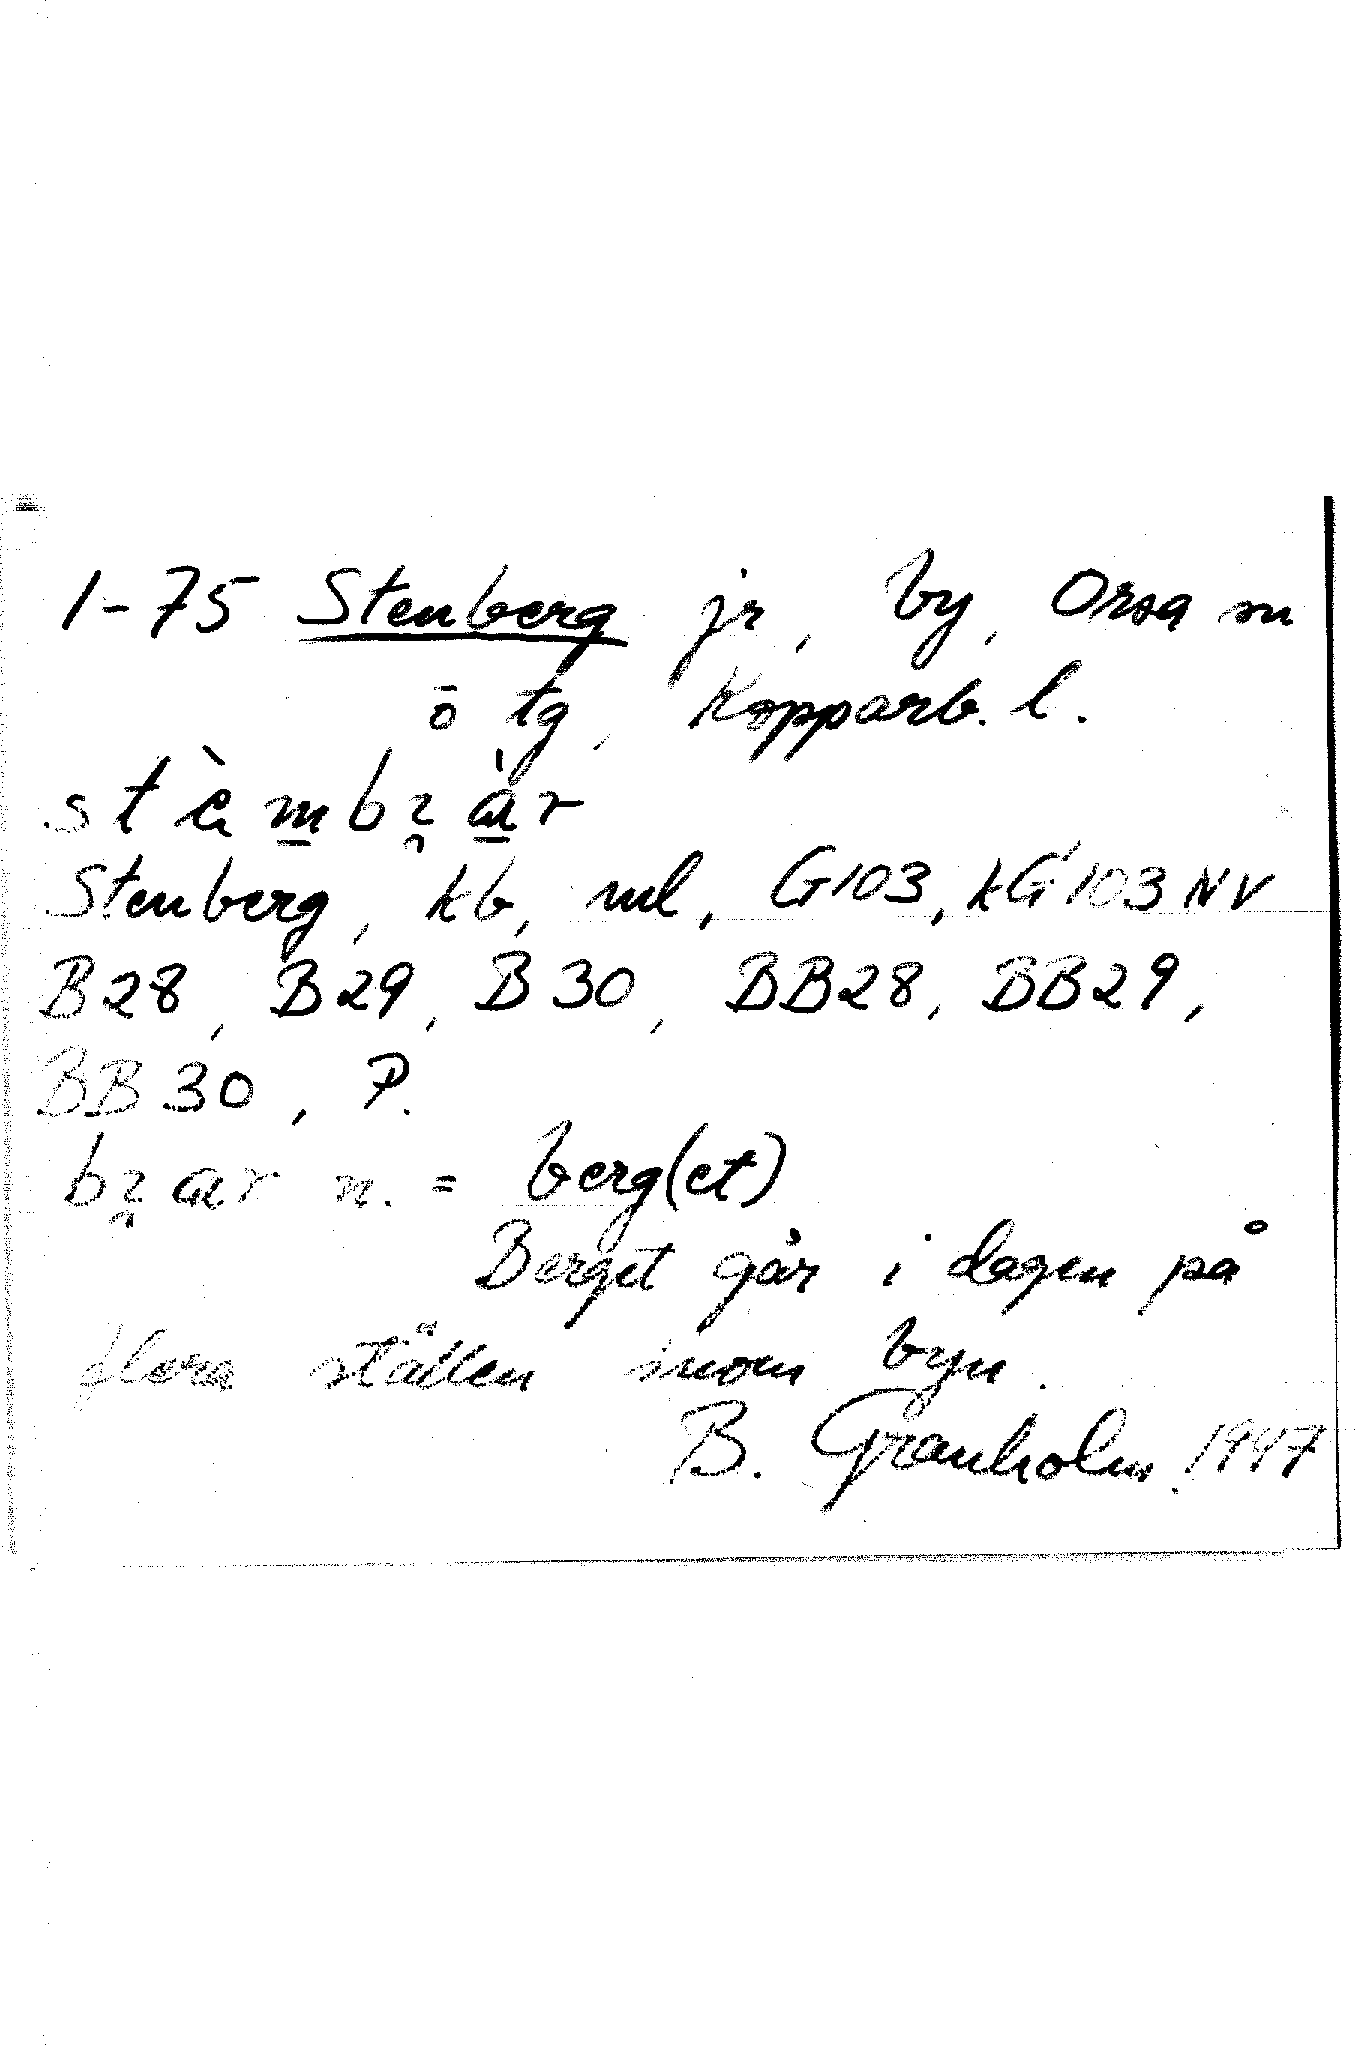 1-75 Stenberg jr, by, Orsa sn
ö tg, Kopparb. l.
stèmbʐàr
Stenberg, kb, ml, G103, kG103NV
B28, B29, B30, BB28, BB29,
BB30, P.
bʐar n. = berg(et)
Berget går i dagen på
flera ställen inom byn.
B. Granholm. 1947